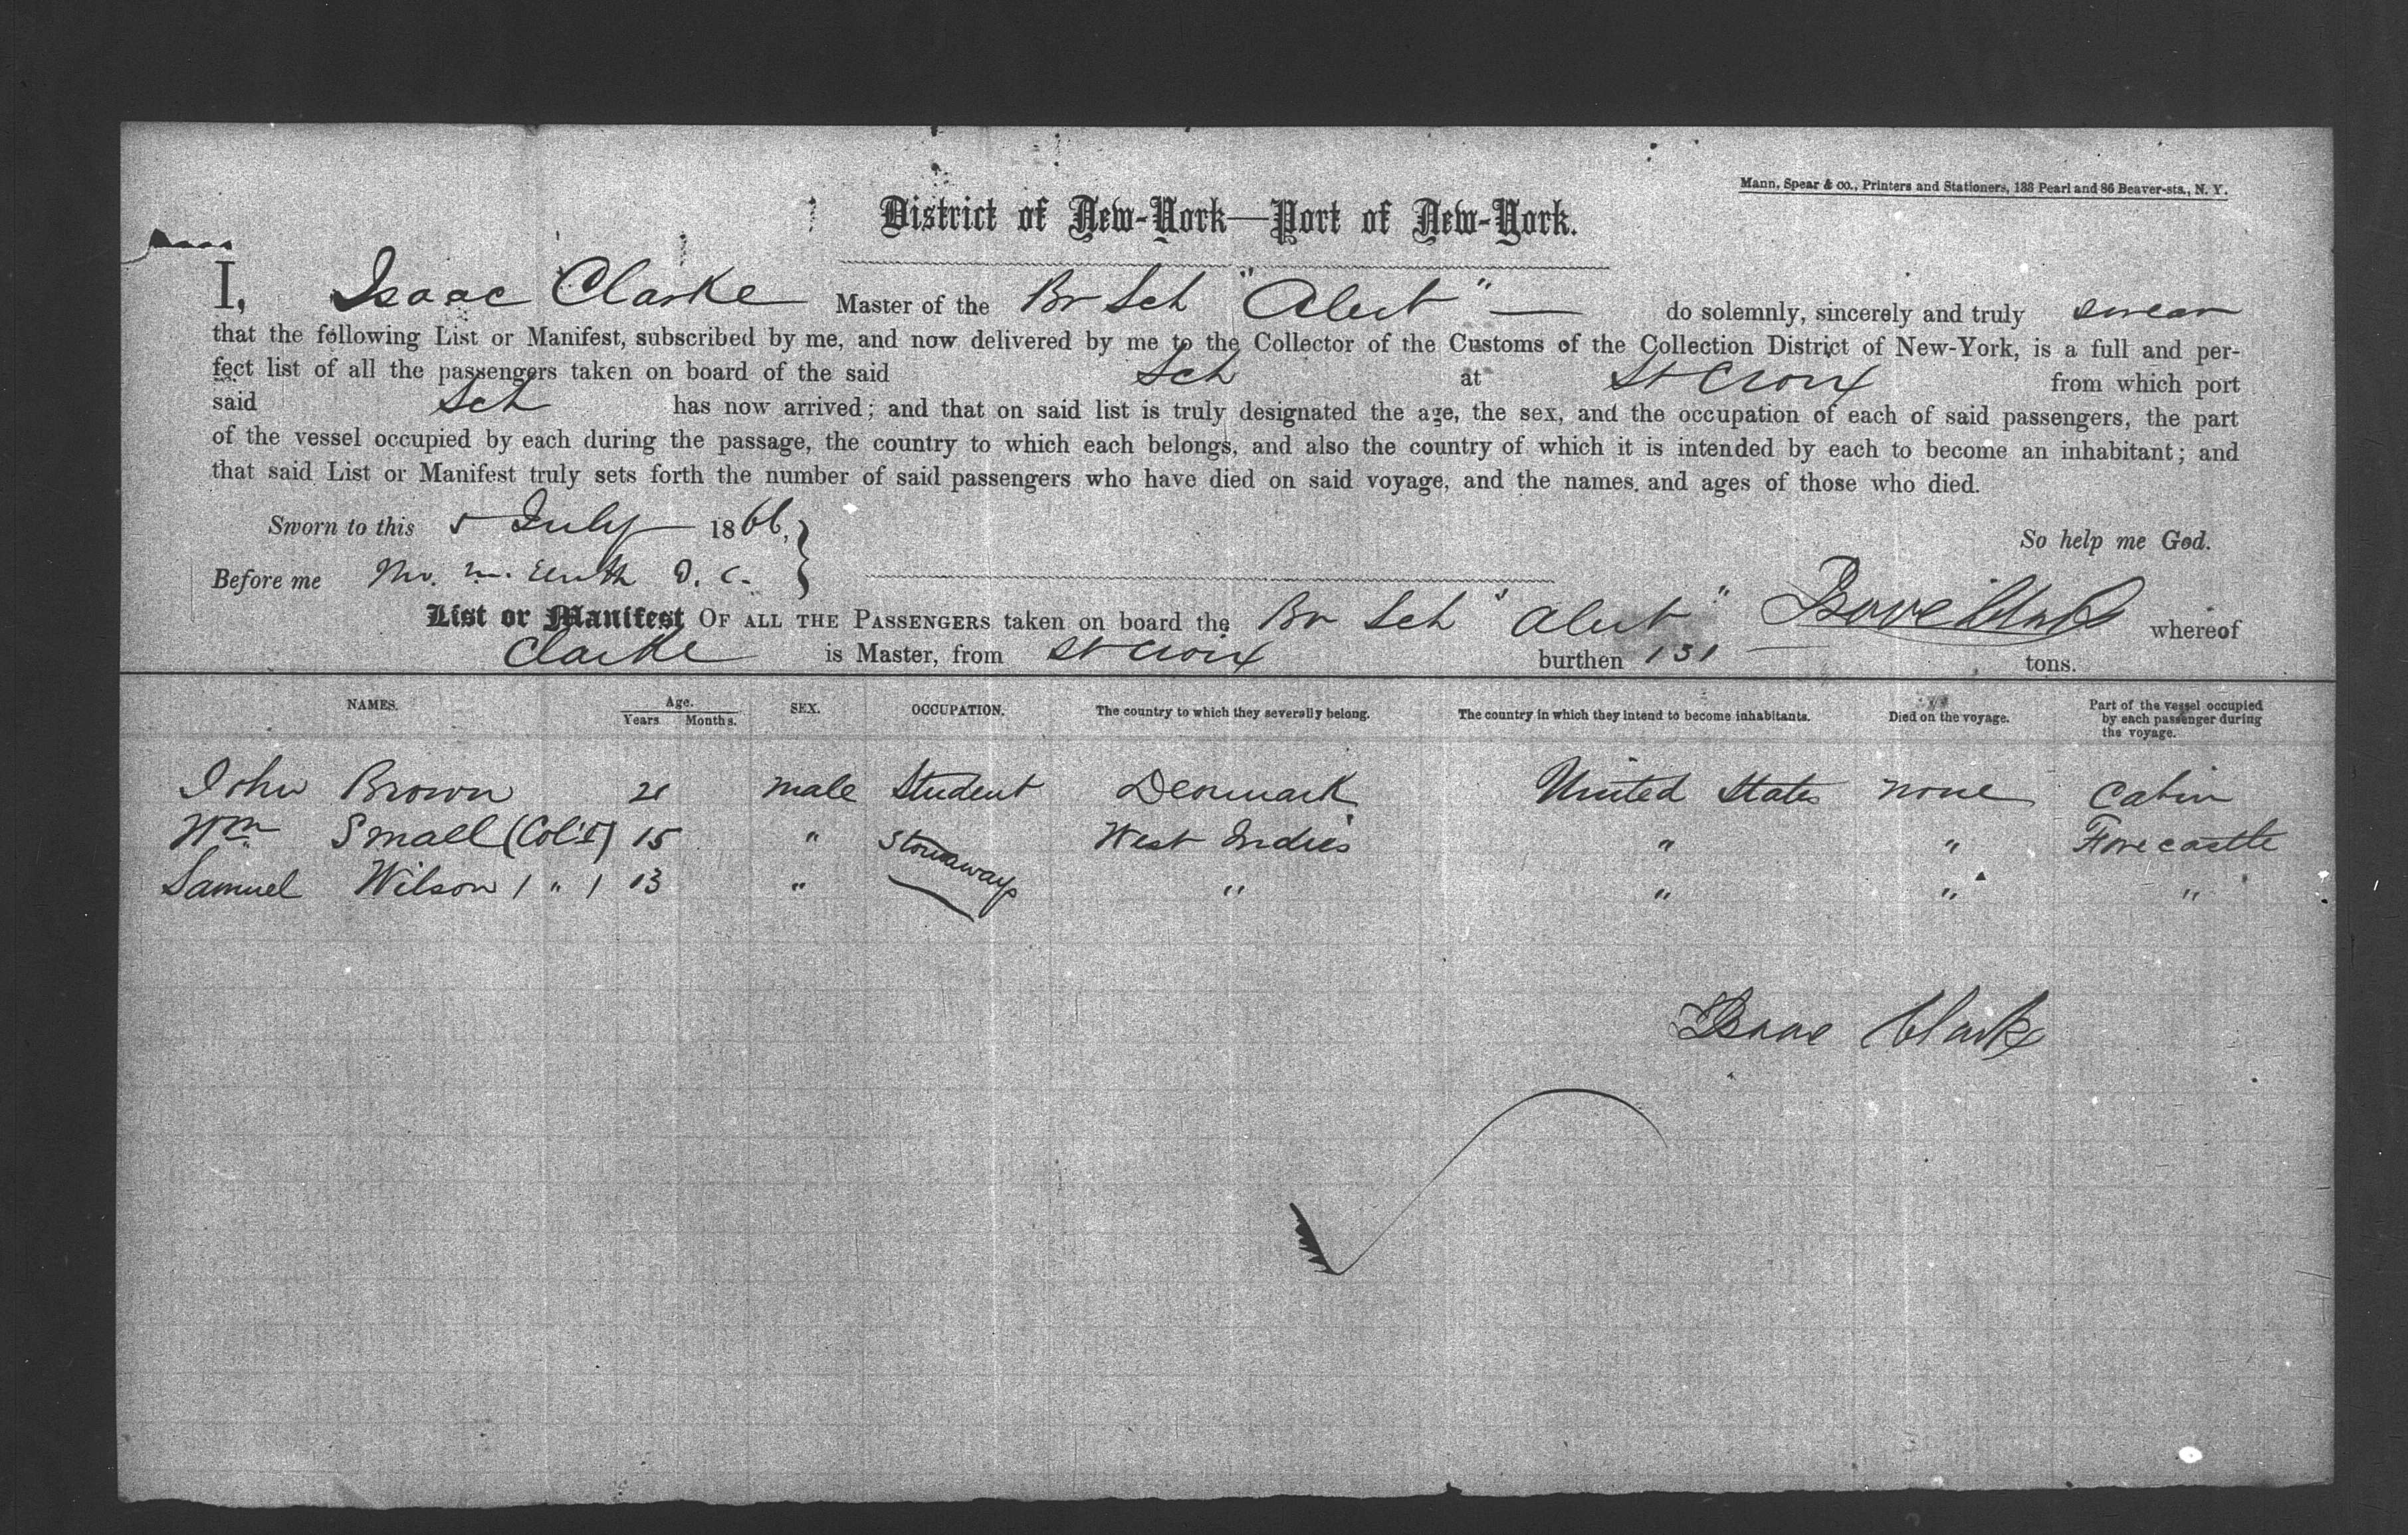 Mann, Spear & co., Printers and Stationers, 133 Pearl and 86 Beaver-sts., N. Y.
District of New-York—Port of New-York.
I, Isaac Clarke Master of the Br Sch "Alert" — do solemnly, sincerely and truly swear
that the following List or Manifest, subscribed by me, and now delivered by me to the Collector of the Customs of the Collection District of New-York, is a full and per-
fect list of all the passengers taken on board of the said Sch at St Croix from which port
said Sch has now arrived; and that on said list is truly designated the age, the sex, and the occupation of each of said passengers, the part
of the vessel occupied by each during the passage, the country to which each belongs, and also the country of which it is intended by each to become an inhabitant; and
that said List or Manifest truly sets forth the number of said passengers who have died on said voyage, and the names, and ages of those who died.
Sworn to this 5 July 1866, So help me God.
Before me D. C.
List or Manifest OF ALL THE PASSENGERS taken on board the Br Sch "Alert" Isaac Clarke whereof
Clarke is Master, from St Croix burthen 131 tons.
NAMES. Age. Years Months. SEX. OCCUPATION. The country to which they severally belong. The country in which they intend to become inhabitants. Died on the voyage. Part of the vessel occupied by each passenger during the voyage.
John Brown 21 male Student Denmark United States none Cabin
Wm Small (Col'd) 15 " Stowaways West Indies " " Forecastle
Samuel Wilson ( " ) 13 " " " " "
Isaac Clarke